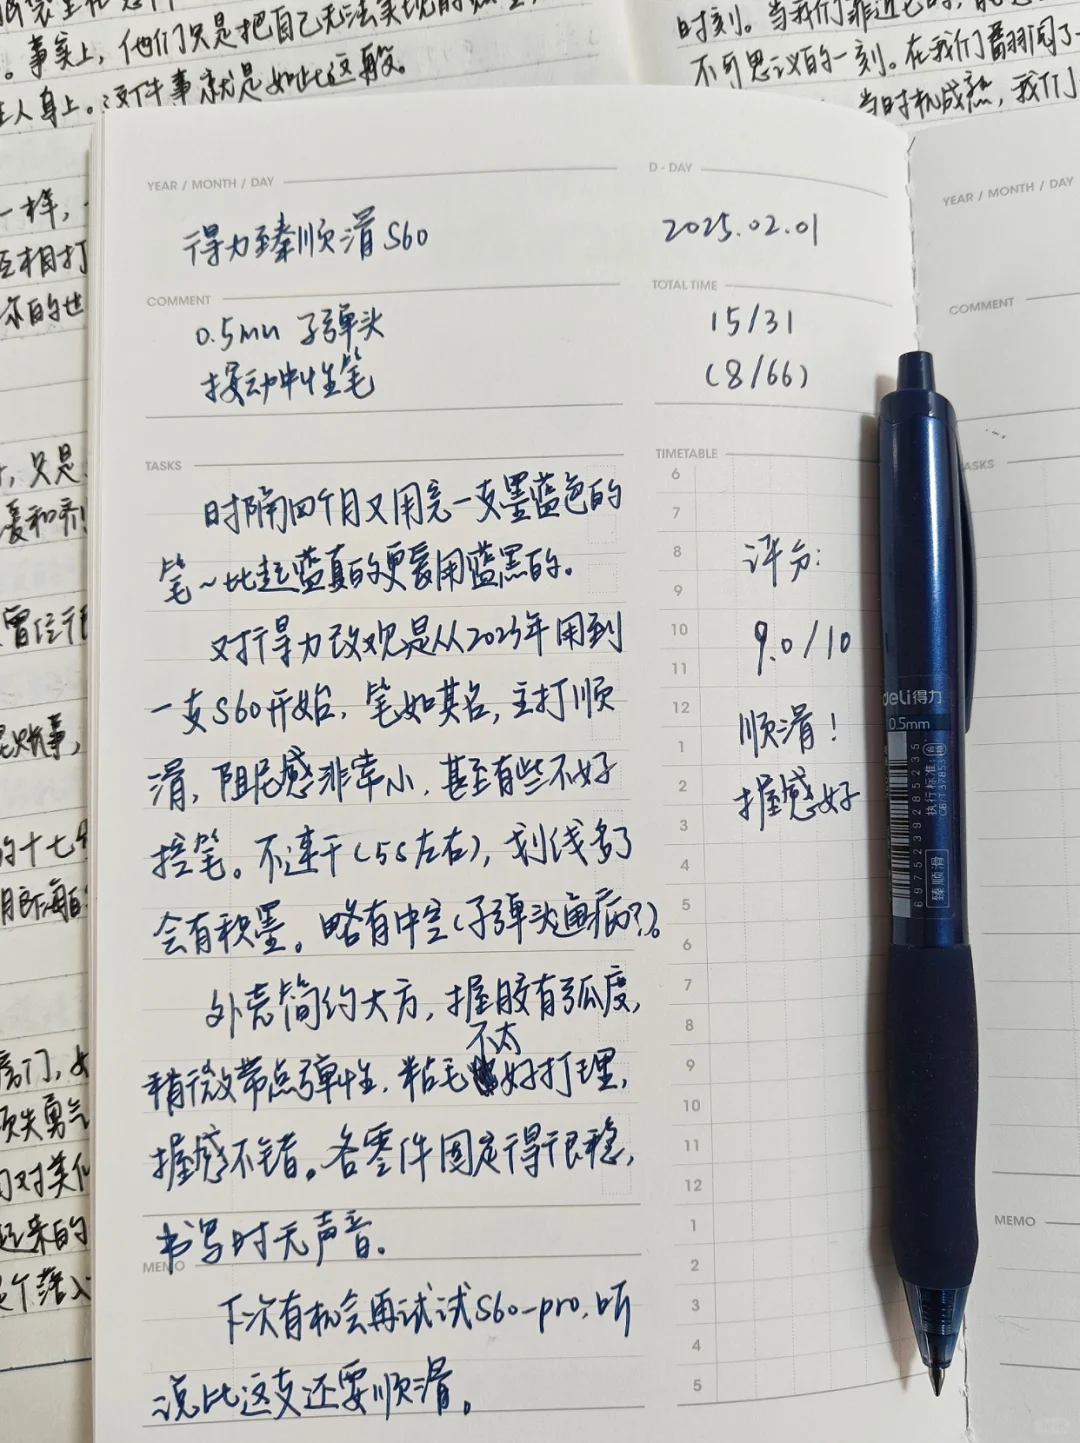 事实上，他们只是把自己无法实现的
人身上。这件事就是如此这般。
时刻。当我们靠近它时，
不可思议的一刻。在我们翻阅了一
当时机成熟，我们
YEAR / MONTH / DAY
D - DAY
得力臻顺滑S60
2025.02.01
COMMENT
TOTAL TIME
0.5mm 子弹头
15/31
按动中性笔
(8/66)
TASKS
TIMETABLE
时隔四个月又用完一支墨蓝色的
笔~比起蓝真的更爱用蓝黑的。
对得力改观是从2023年用到
一支S60开始，笔如其名，主打顺
滑，阻尼感非常小，甚至有些不好
控笔。不速干(5s左右)，划线多了
会有积墨。略有中空(子弹头通病?)。
外壳简约大方，握胶有弧度，
稍微带点弹性，粘毛不太好打理，
握感不错。各零件固定得很稳，
书写时无声音。
MEMO
下次有机会再试试S60-pro，听
说比这支还要顺滑。
6
7
8
9
10
11
12
1
2
3
4
5
6
7
8
9
10
11
12
1
2
3
4
5
评分：
9.0/10
顺滑！
握感好
deli得力
0.5mm
执行标准:
臻顺滑
6975239285235
YEAR / MONTH / DAY
COMMENT
ASKS
MEMO
一样，
互相打
，只是
的十七
起来的